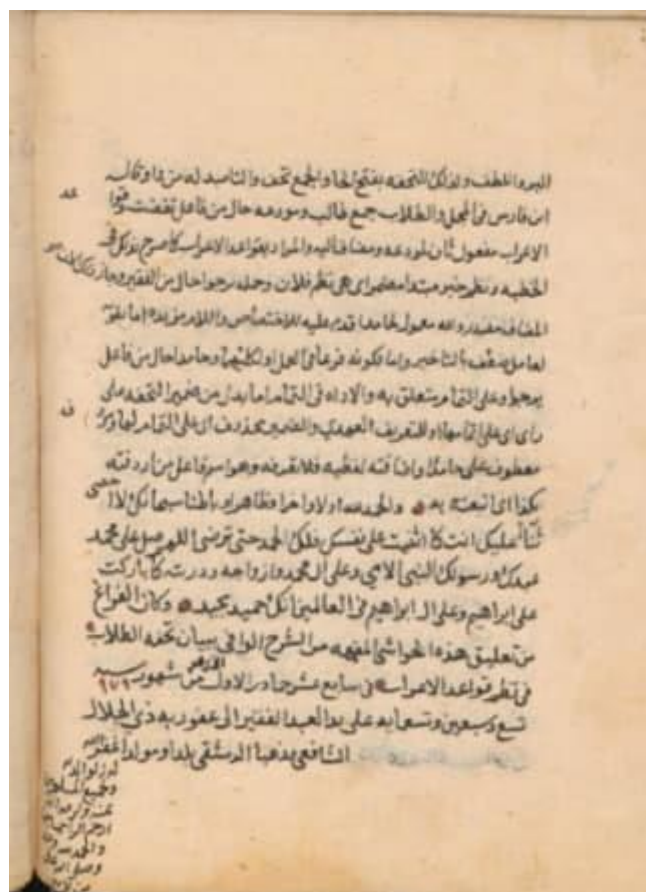 البر واللطف وكذلك التحفه بفتح الحا والجمع تحف والتا مبدله من واو قاله
ابن فارس في المجمل والطلاب جمع طالب ومودعه حال من فاعل نظمت وقواعد
الاعراب مفعول ثان لمودعه ومضاف اليه والمراد بقواعد الاعراب كما صرح بذلك في
الخطبه ونظم خبر مبتدا مضمر اي هي نظم فلان وجمله يرجو حال من الفقير وجاز
المضاف مقدر ولله معمول لحامدا قدم عليه للاختصاص واللام مزيده اما لتقوية
لعامل ضعف بالتاخير واما لكونه فرعا في العمل او لكليهما وحامدا حال من فاعل
يرجو وعلى التمام متعلق به والاداه في التمام اما بدل من ضمير التحفه على
راي اي على تمامها او للتعريف العهدي والضمير محذوف اي على التمام لها
معطوف على حامدا واضافته لفظيه فلا تعرفه وهو اسم فاعل من اردفته
بكذا اي اتبعته به والحمد لله اولا واخرا وظاهرا وباطنا سبحانك لا احصي
ثنا عليك انت كما اثنيت على نفسك فلك الحمد حتى ترضى اللهم صل على محمد
عبدك ورسولك النبي الامي وعلى ال محمد وازواجه وذريته كما باركت
على ابراهيم وعلى ال ابراهيم في العالمين انك حميد مجيد وكان الفراغ
من تعليق هذه الحواشي المفيده من الشرح الوافي ببيان تحفه الطلاب
في نظم قواعد الاعراب في سابع عشر جمادى الاول من شهور سنه
٩٧٩
تسع وسبعين وتسعمايه على يد العبد الفقير الى عفو ربه ذي الجلال
الشافعي مذهبا الدمشقي بلدا ومولدا غفر الله
له ولوالديه
وجميع المسلمين
ارحم الراحمين
والحمد لله